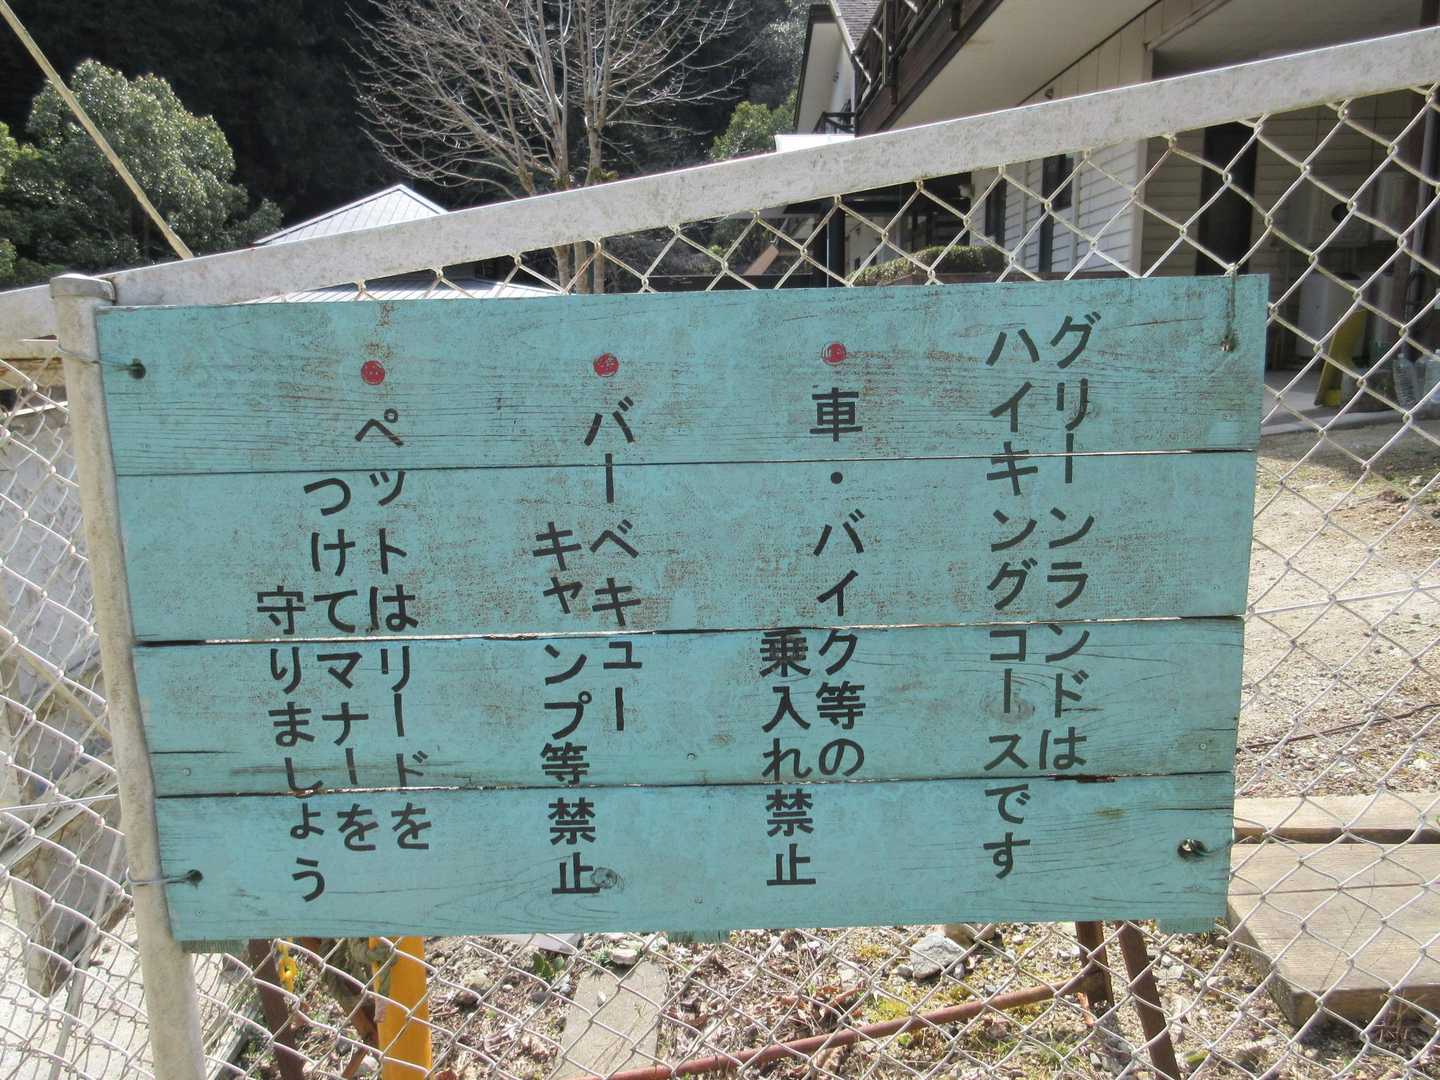 グリーンランドは
ハイキングコースです
●車・バイク等の
乗入れ禁止
●バーベキュー
キャンプ等禁止
●ペットはリードを
つけてマナーを
守りましょう